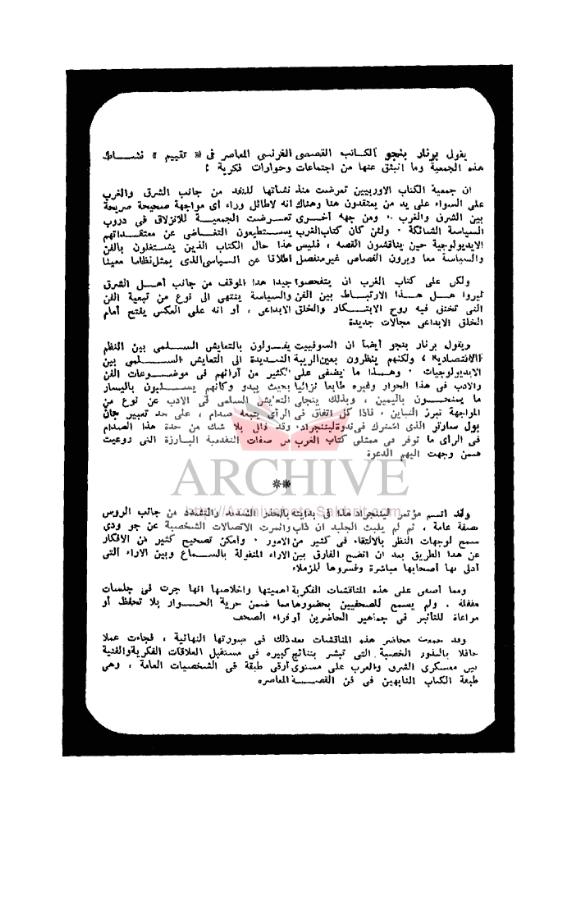 يقول برنار بنجو الكاتب القصصى الفرنسى المعاصر فى « تقييم » نشـــاط
هذه الجمعية وما انبثق عنها من اجتماعات وحوارات فكرية :
ان جمعية الكتاب الاوربيين تعرضت منذ نشأتها للنقد من جانب الشرق والغرب
على السواء على يد من يعتقدون هنا وهناك انه لاطائل وراء اى مواجهة صحيحة صريحة
بين الشرق والغرب .. ومن جهه أخرى تعـرضت الجمعيــة للانزلاق فى دروب
السياسة الشائكة . ولئن كان كتاب الغرب يستطيعون التغاضى عن معتقداتهم
الايديولوجية حين يناقشون القصه ، فليس هذا حال الكتاب الذين يشتغلون بالفن
والسياسة معا ويرون القصاص غير منفصل اطلاقا عن السياسى الذى يمثل نظاما معينا
ولكن على كتاب الغرب ان يتفحصوا جيدا هذا الموقف من جانب أهـل الشرق
ليروا هــل هـــذا الارتبــاط بين الفن والسياسة ينتهى الى نوع من تبعية الفن
التى تختنق فيه روح الابتــكار والخلق الابداعى ، أو انه على العكس يفتح أمام
الخلق الابداعى مجالات جديدة
ويقول برنار بنجو أيضا ان السوفييت يقــولون بالتعايش السـلمى بين النظم
الاقتصادية ، ولكنهم ينظرون بعين الريبة الشديدة الى التعايش السـلمى بين
الايديولوجيات . وهــذا ما يضفى على الكثير من آرائهم فى موضــوعات الفن
والادب فى هذا الحوار وغيره طابعا بحيث يبدو وكأنهم يســلون باليسار
ما يمنحــون باليمين ، وبذلك ينجلى التعايش السلمى فى الادب عن نوع من
المواجهة تبرز التباين . فاذا كل اتفاق فى الرأى يتبعه صدام ، على حد تعبير جان
بول سارتر الذى اشترك فى ندوة ليننجراد . وقد قلل بلا شك من حدة هذا الصدام
فى الرأى ما توفر فى ممثلى كتاب الغرب من صفات التقدمية البارزة التى روعيت
فيمن وجهت اليهم الدعوة
ARCHIVE
**
ولقد اتسم مؤتمر ليننجراد هذا فى بدايته بالحذر الشديد والتشدد من جانب الروس
بصفة عامة ، ثم لم يلبث الجليد ان ذاب واثمرت الاتصالات الشخصية عن جو ودى
سمح لوجهات النظر بالالتقاء فى كثير من الامور . وامكن تصحيح كثير من الافكار
عن هذا الطريق بعد ان اتضح الفارق بين الاراء المنقولة بالســماع وبين الاراء التى
أدلى بها أصحابها مباشرة وفسروها لزملاء
ومما أضفى على هذه المناقشات الفكرية أهميتها واخلاصها انها جرت فى جلسات
مقفلة . ولم يسمح للصحفيين بحضورها مما ضمن حرية الحــوار بلا تحفظ أو
مراعاة للتأثير فى جماهير الحاضرين أو قراء الصحف
وقد جمعت محاضر هذه المناقشات بعد ذلك فى صورتها النهائية ، فجاءت عملا
حافلا بالبذور الخصبة التى تبشر بنتائج كبيره فى مستقبل العلاقات الفكرية والفنية
بين معسكرى الشرق والغرب على مستوى أرقى طبقة فى الشخصيات العامة ، وهى
طبقة الكتاب النابهين فى فن القصــة المعاصره